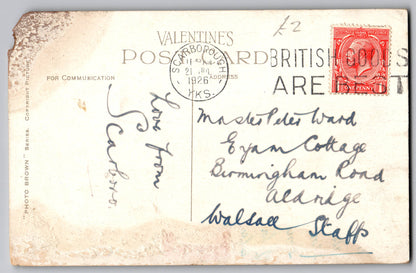 £2
VALENTINES
POSTCARD
FOR COMMUNICATION
ADDRESS
SCARBOROUGH
21 JUL
1926
YKS.
BRITISH GOODS
ARE BEST
ONE PENNY
"PHOTO BROWN" SERIES. COPYRIGHT
Love from
Scarboro.
Master Peter Ward
Eyam Cottage
Birmingham Road
Aldridge
Walsall Staffs